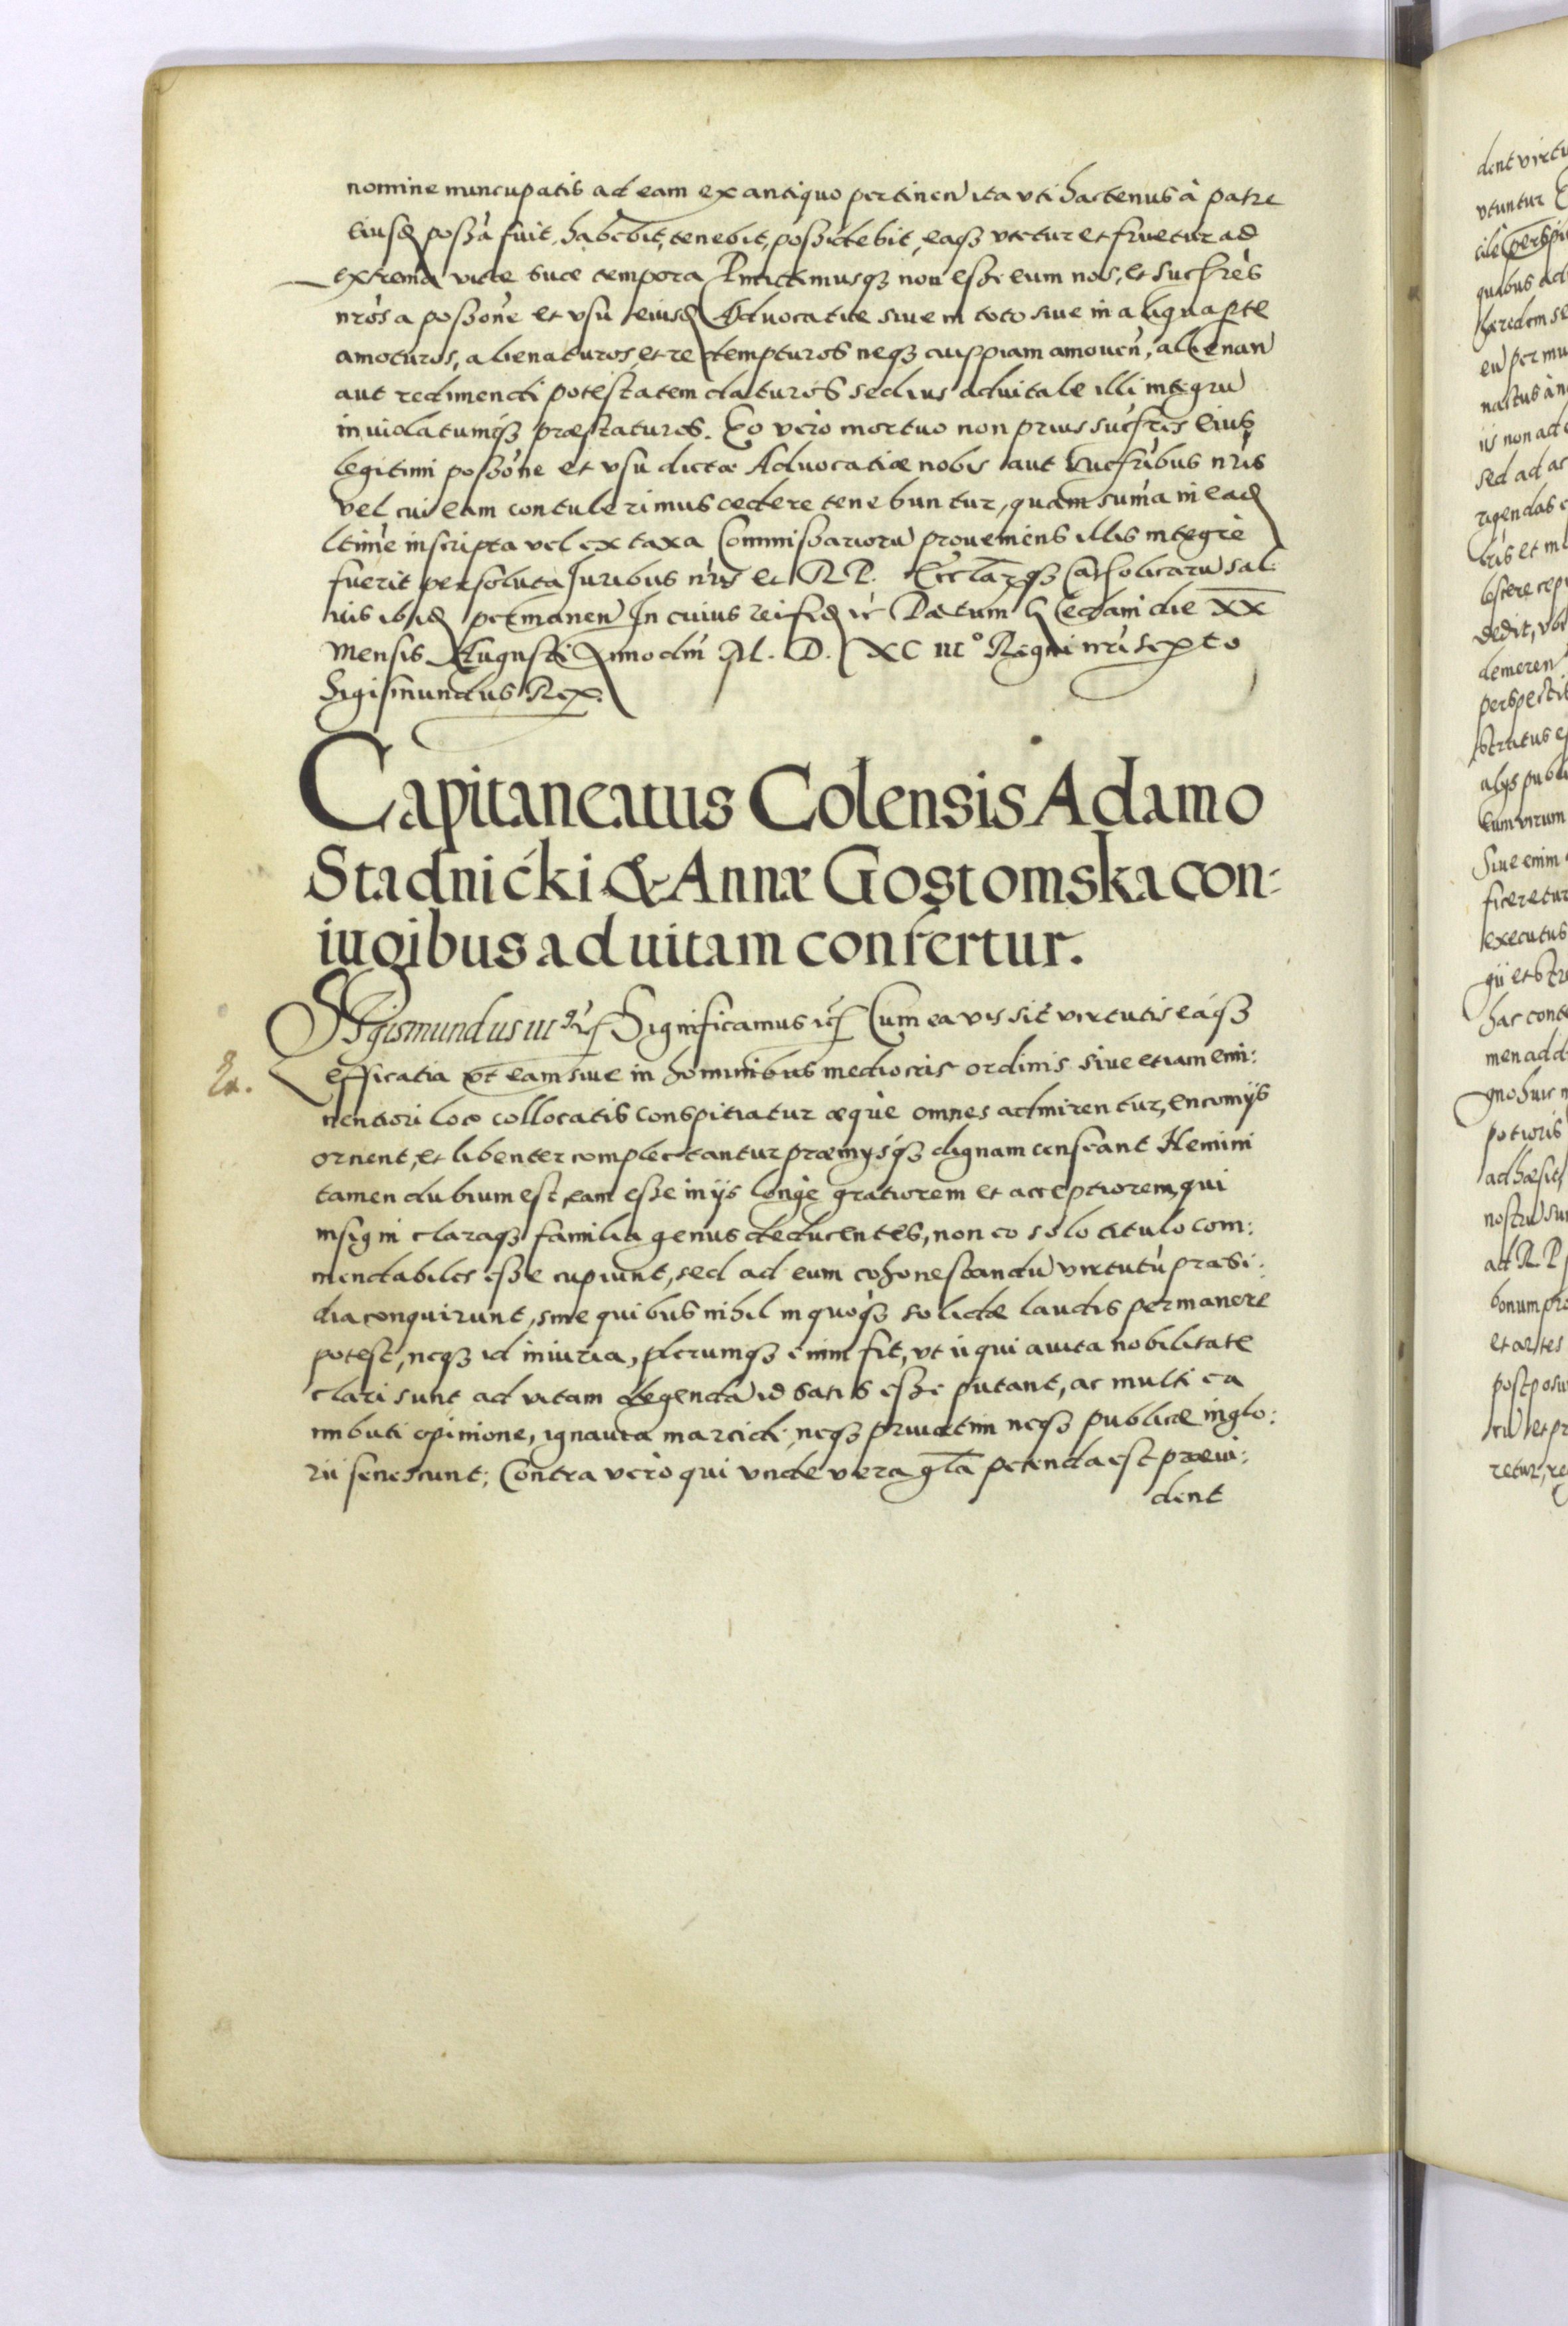 nomine nuncupatis ad eam ex antiquo pertinen̄ ita uti hactenus à patre
eiusd possa fuit, habebit, tenebit, possidebit, eaqȝ utetur et fruetur ad
extrema vitæ suæ tempora Promittimusqȝ non esse eum nos, et succres
nros a possone et usu eiusd Advocatiæ sive in toto sive in aliqua parte
amoturos, alienaturos, et redempturos neqȝ cuippiam amouen, alienan
aut redimendi potestatem daturos sed ius aduitale illi integru
inuiolatumqȝ præstaturos. Eo vero mortuo non prius succres eius
legitimi possone et usu dictæ Advocatiæ nobis aut succribus nris
vel cui eam contulerimus cedere tenebuntur, quam suma in ead
ltime inscripta vel ex taxa Commissarioru proueniens illis integrè
fuerit persoluta Juribus nris et R P. Eccларqȝ Catholicaru sal
uis ibid permanen In cuius rei fid ic Datum die XX
Mensis Augusti Anno dm M. D. XC III° Regni nri sexto
Sigismundus Rex.
Capitaneatus Colensis Adamo
Stadnićki & Annæ Gostomska con-
iugibus ad uitam confertur.
Sigismundus III Significamus ic Cum ea vis sit virtutis eaqȝ
efficatia ut eam sive in hominibus mediocris ordinis sive etiam emi:
nentiori loco collocatis conspitiatur æque omnes admirentur, encomijs
ornent, et libenter complectantur præmysqȝ dignam censeant Nemini
tamen dubium est, eam esse in ijs longè gratiorem et acceptiorem, qui
insigni claraqȝ familia genus deducentes, non eo solo titulo com:
mendabiles esse cupiunt, sed ad eum cohonestandu virtutu præsi:
dia conquirunt, sine quibus nihil in quoqȝ solidæ laudis permanere
potest, neqȝ id iniuria, plerumqȝ enim fit, ut ii qui auita nobilitate
clari sunt ad vitam degenda id satis esse putant, ac multi ea
imbuti opinione, ignauia marcidi, neqȝ priuatim neqȝ publice inglo:
rii senescunt; Contra vero qui unde vera gla petenda est præui:
dent